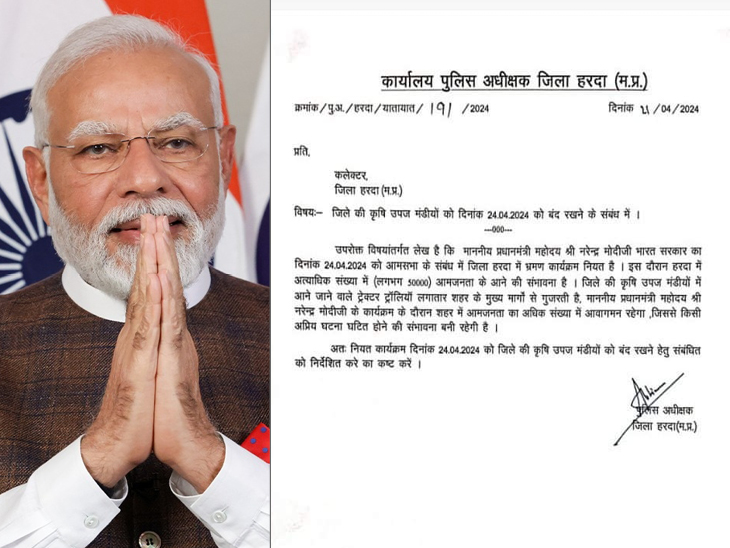 कार्यालय पुलिस अधीक्षक जिला हरदा (म.प्र.)
क्रमांक/पु.अ./हरदा/यातायात/ 191 /2024 दिनांक 21/04/2024
प्रति,
कलेक्टर,
जिला हरदा (म.प्र.)
विषयः– जिले की कृषि उपज मंडीयों को दिनांक 24.04.2024 को बंद रखने के संबंध में ।
---000---
उपरोक्त विषयांतर्गत लेख है कि माननीय प्रधानमंत्री महोदय श्री नरेन्द्र मोदीजी भारत सरकार का
दिनांक 24.04.2024 को आमसभा के संबंध में जिला हरदा में भ्रमण कार्यक्रम नियत है । इस दौरान हरदा में
अत्याधिक संख्या में (लगभग 50000) आमजनता के आने की संभावना है । जिले की कृषि उपज मंडीयों में
आने जाने वाले ट्रेक्टर ट्रॉलियों लगातार शहर के मुख्य मार्गो से गुजरती है, माननीय प्रधानमंत्री महोदय श्री
नरेन्द्र मोदीजी के कार्यक्रम के दौरान शहर में आमजनता का अधिक संख्या में आवागमन रहेगा ,जिससे किसी
अप्रिय घटना घटित होने की संभावना बनी रहेगी ।
अतः नियत कार्यक्रम दिनांक 24.04.2024 को जिले की कृषि उपज मंडीयों को बंद रखने हेतु संबंधित
को निर्देशित करे का कष्ट करें ।
पुलिस अधीक्षक
जिला हरदा(म.प्र.)